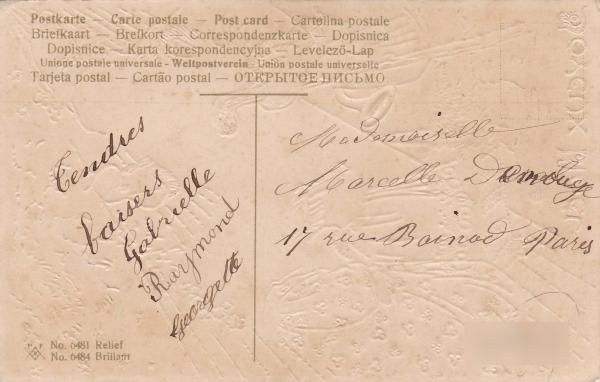 Postkarte — Carte postale — Post card — Cartolina postale
Briefkaart — Brefkort — Correspondenzkarte — Dopisnica
Dopisnice — Karta korespondencyjna — Levelező-Lap
Unione postale universale - Weltpostverein - Unión postale universelle
Tarjeta postal — Cartão postal — ОТКРЫТОЕ ПИСЬМО
Tendres
baisers
Gabrielle
Raymond
Georgette
Mademoiselle
Marcelle
17 rue Boinod Paris
No. 6481 Relief
No. 6484 Brillant